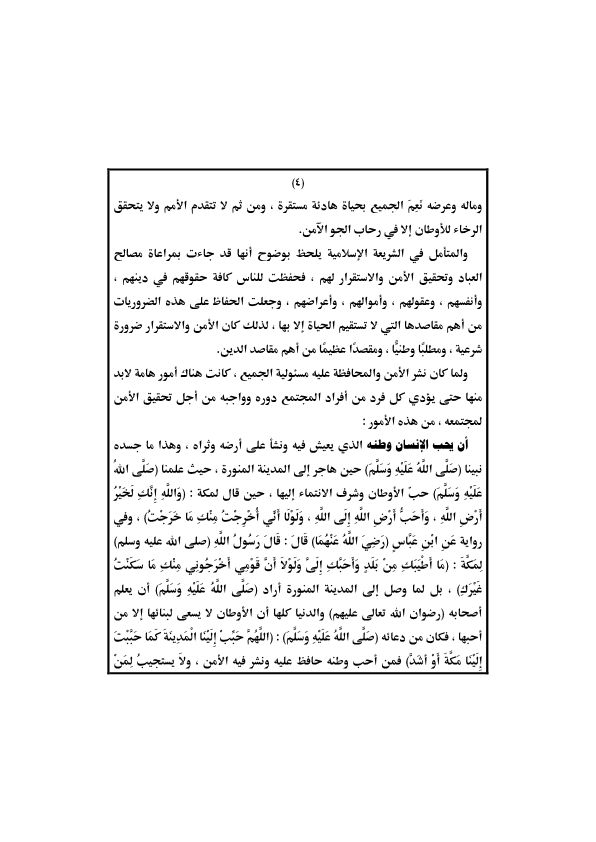 (٤)
وماله وعرضه نَعِمَ الجميع بحياة هادئة مستقرة ، ومن ثم لا تتقدم الأمم ولا يتحقق
الرخاء للأوطان إلا في رحاب الجو الآمن.
والمتأمل في الشريعة الإسلامية يلحظ بوضوح أنها قد جاءت بمراعاة مصالح
العباد وتحقيق الأمن والاستقرار لهم ، فحفظت للناس كافة حقوقهم في دينهم ،
وأنفسهم ، وعقولهم ، وأموالهم ، وأعراضهم ، وجعلت الحفاظ على هذه الضروريات
من أهم مقاصدها التي لا تستقيم الحياة إلا بها ، لذلك كان الأمن والاستقرار ضرورة
شرعية ، ومطلبًا وطنيًّا ، ومقصدًا عظيمًا من أهم مقاصد الدين.
ولما كان نشر الأمن والمحافظة عليه مسئولية الجميع ، كانت هناك أمور هامة لابد
منها حتى يؤدي كل فرد من أفراد المجتمع دوره وواجبه من أجل تحقيق الأمن
لمجتمعه ، من هذه الأمور :
أن يحب الإنسان وطنه الذي يعيش فيه ونشأ على أرضه وثراه ، وهذا ما جسده
نبينا (صَلَّى اللَّهُ عَلَيْهِ وَسَلَّمَ) حين هاجر إلى المدينة المنورة ، حيث علمنا (صَلَّى اللهُ
عَلَيْهِ وَسَلَّمَ) حبّ الأوطان وشرف الانتماء إليها ، حين قال لمكة : (وَاللَّهِ إِنَّكِ لَخَيْرُ
أَرْضِ اللَّهِ ، وَأَحَبُّ أَرْضِ اللَّهِ إِلَى اللَّهِ ، وَلَوْلَا أَنِّي أُخْرِجْتُ مِنْكِ مَا خَرَجْتُ) ، وفي
رواية عَنِ ابْنِ عَبَّاسٍ (رَضِيَ اللَّهُ عَنْهُمَا) قَالَ : قَالَ رَسُولُ اللَّهِ (صلى الله عليه وسلم)
لِمَكَّةَ : (مَا أَطْيَبَكِ مِنْ بَلَدٍ وَأَحَبَّكِ إِلَىَّ وَلَوْلاَ أَنَّ قَوْمِي أَخْرَجُونِي مِنْكِ مَا سَكَنْتُ
غَيْرَكِ) ، بل لما وصل إلى المدينة المنورة أراد (صَلَّى اللَّهُ عَلَيْهِ وَسَلَّمَ) أن يعلم
أصحابه (رضوان الله تعالى عليهم) والدنيا كلها أن الأوطان لا يسعى لبنائها إلا من
أحبها ، فكان من دعائه (صَلَّى اللَّهُ عَلَيْهِ وَسَلَّمَ) : (اللَّهُمَّ حَبِّبْ إِلَيْنَا الْمَدِينَةَ كَمَا حَبَّبْتَ
إِلَيْنَا مَكَّةَ أَوْ أَشَدَّ) فمن أحب وطنه حافظ عليه ونشر فيه الأمن ، ولاَ يستجيبُ لِمَنْ